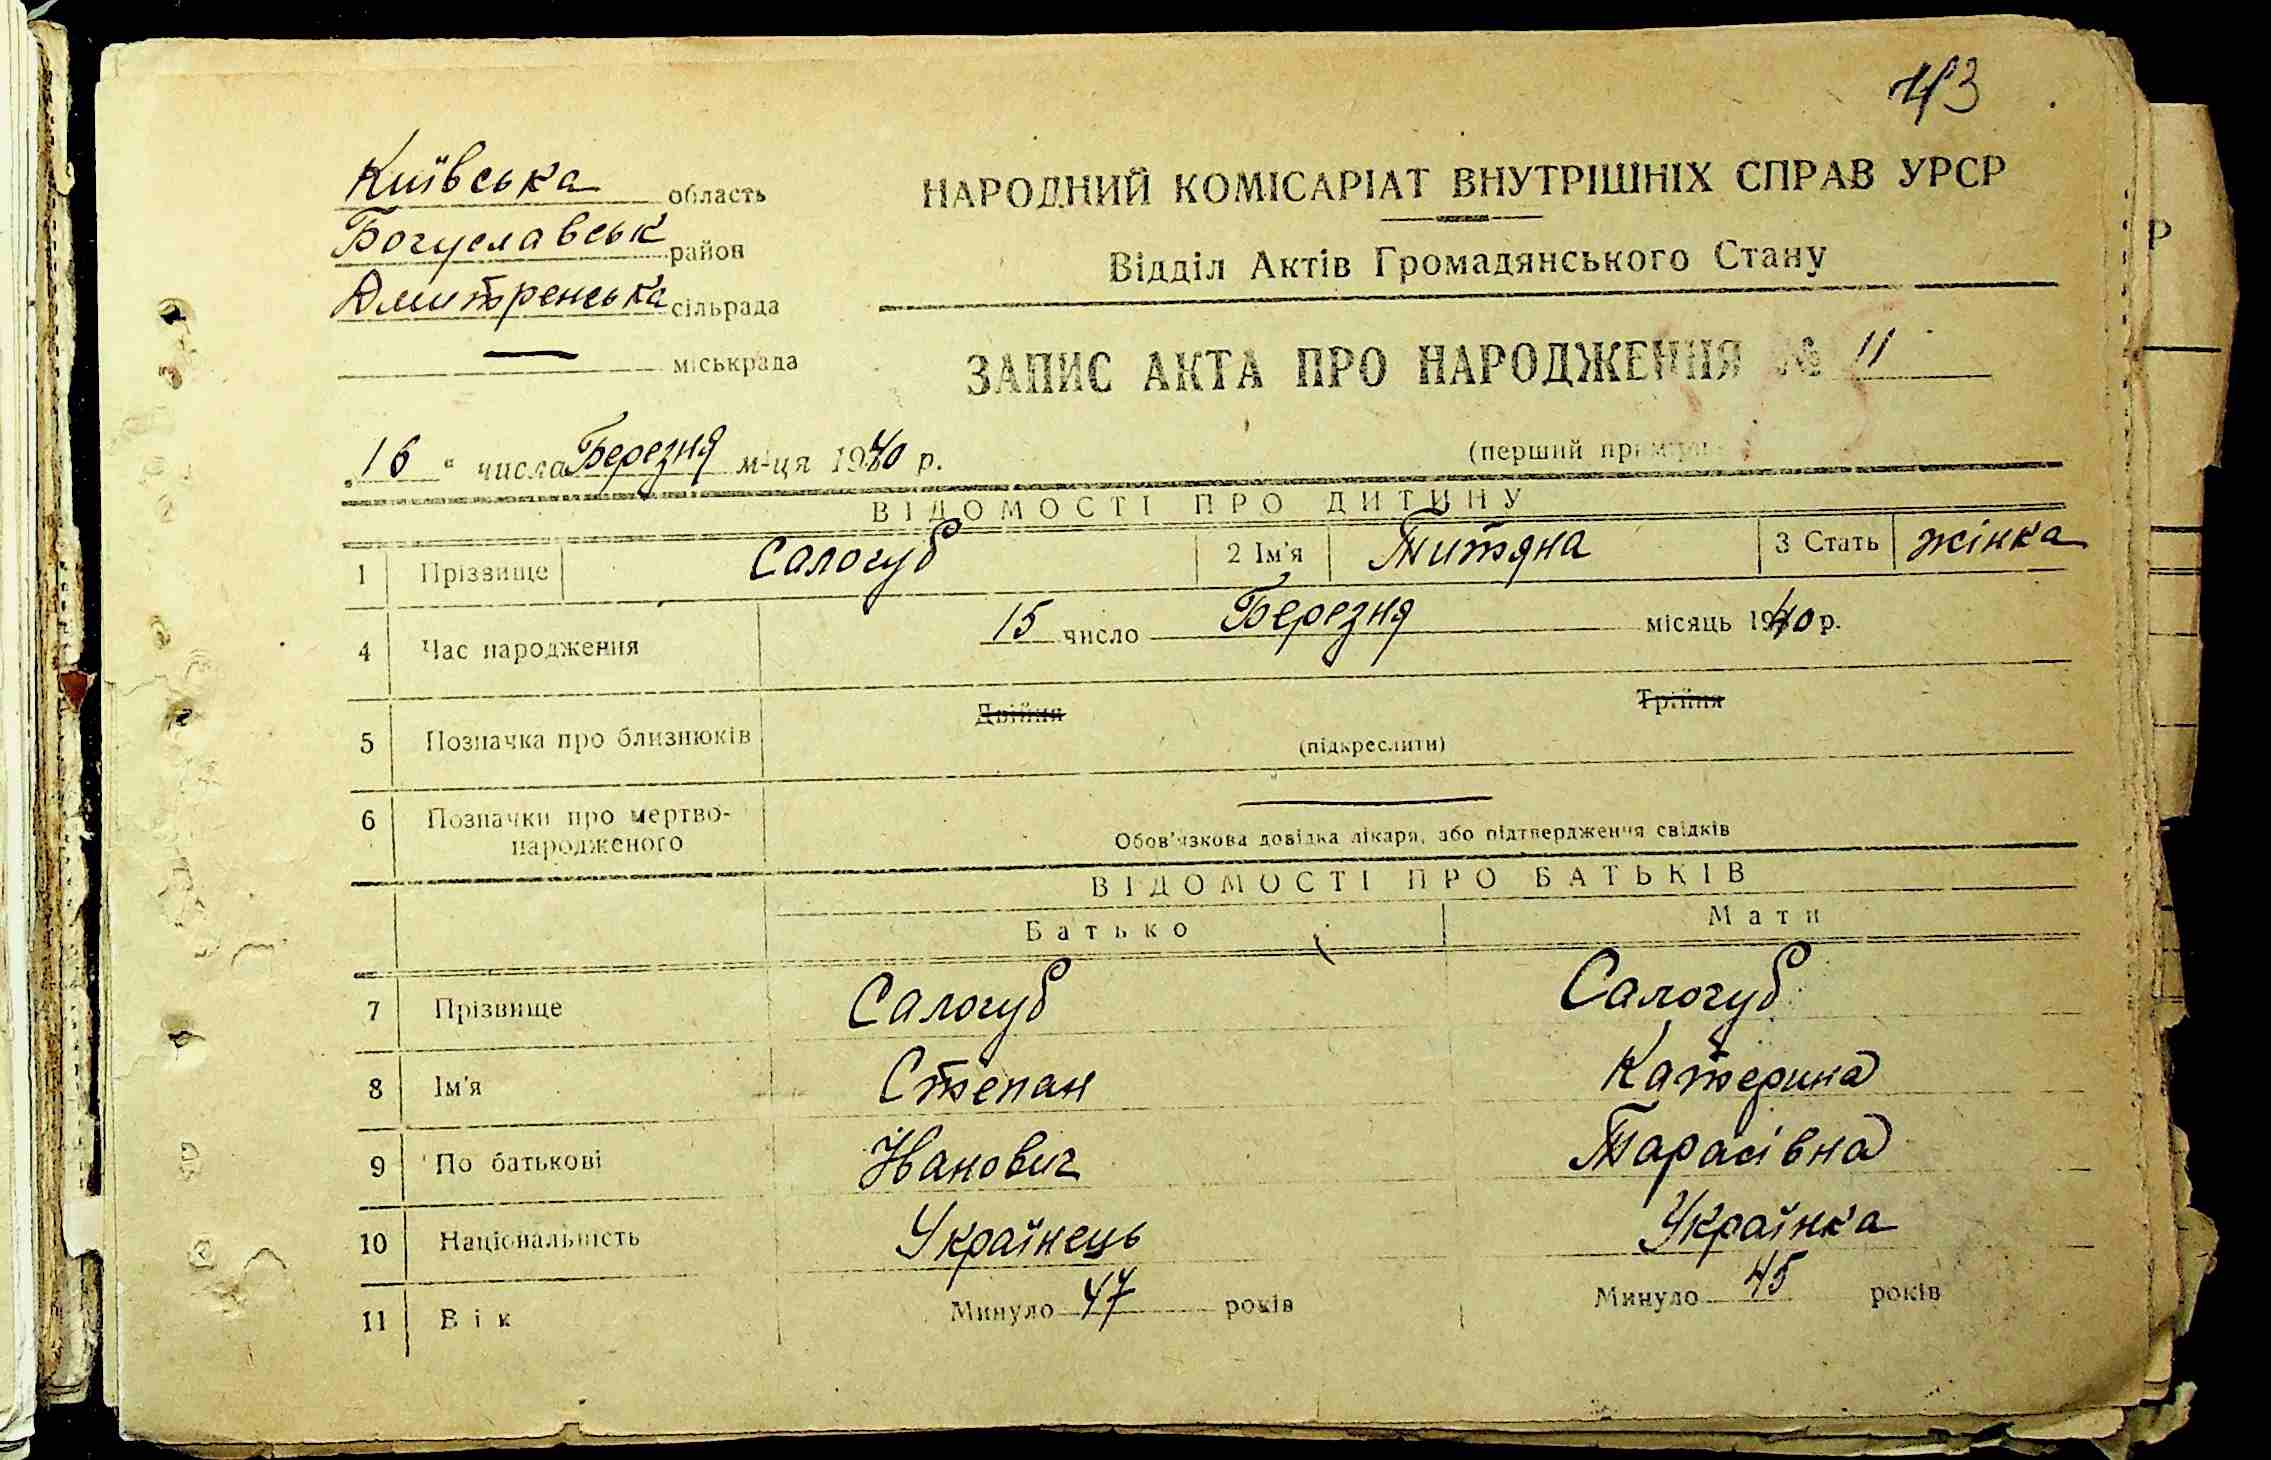 43
Київська область
Богуславськ район
Дмитренська сільрада
— міськрада
НАРОДНИЙ КОМІСАРІАТ ВНУТРІШНІХ СПРАВ УРСР
Відділ Актів Громадянського Стану
ЗАПИС АКТА ПРО НАРОДЖЕННЯ № 11
„16“ числа Березня м-ця 1940 р.
(перший
ВІДОМОСТІ ПРО ДИТИНУ
1 Прізвище Салогуб 2 Ім'я Титяна 3 Стать жінка
4 Час народження 15 число Березня місяць 1940 р.
5 Позначка про близнюків Двійня Трійня
(підкреслити)
6 Позначки про мертво-
народженого
Обов'язкова довідка лікаря, або підтвердження свідків
ВІДОМОСТІ ПРО БАТЬКІВ
Батько Мати
7 Прізвище Салогуб Салогуб
8 Ім'я Степан Катерина
9 По батькові Іванович Тарасівна
10 Національність Українець Українка
11 Вік Минуло 47 років Минуло 45 років
Р